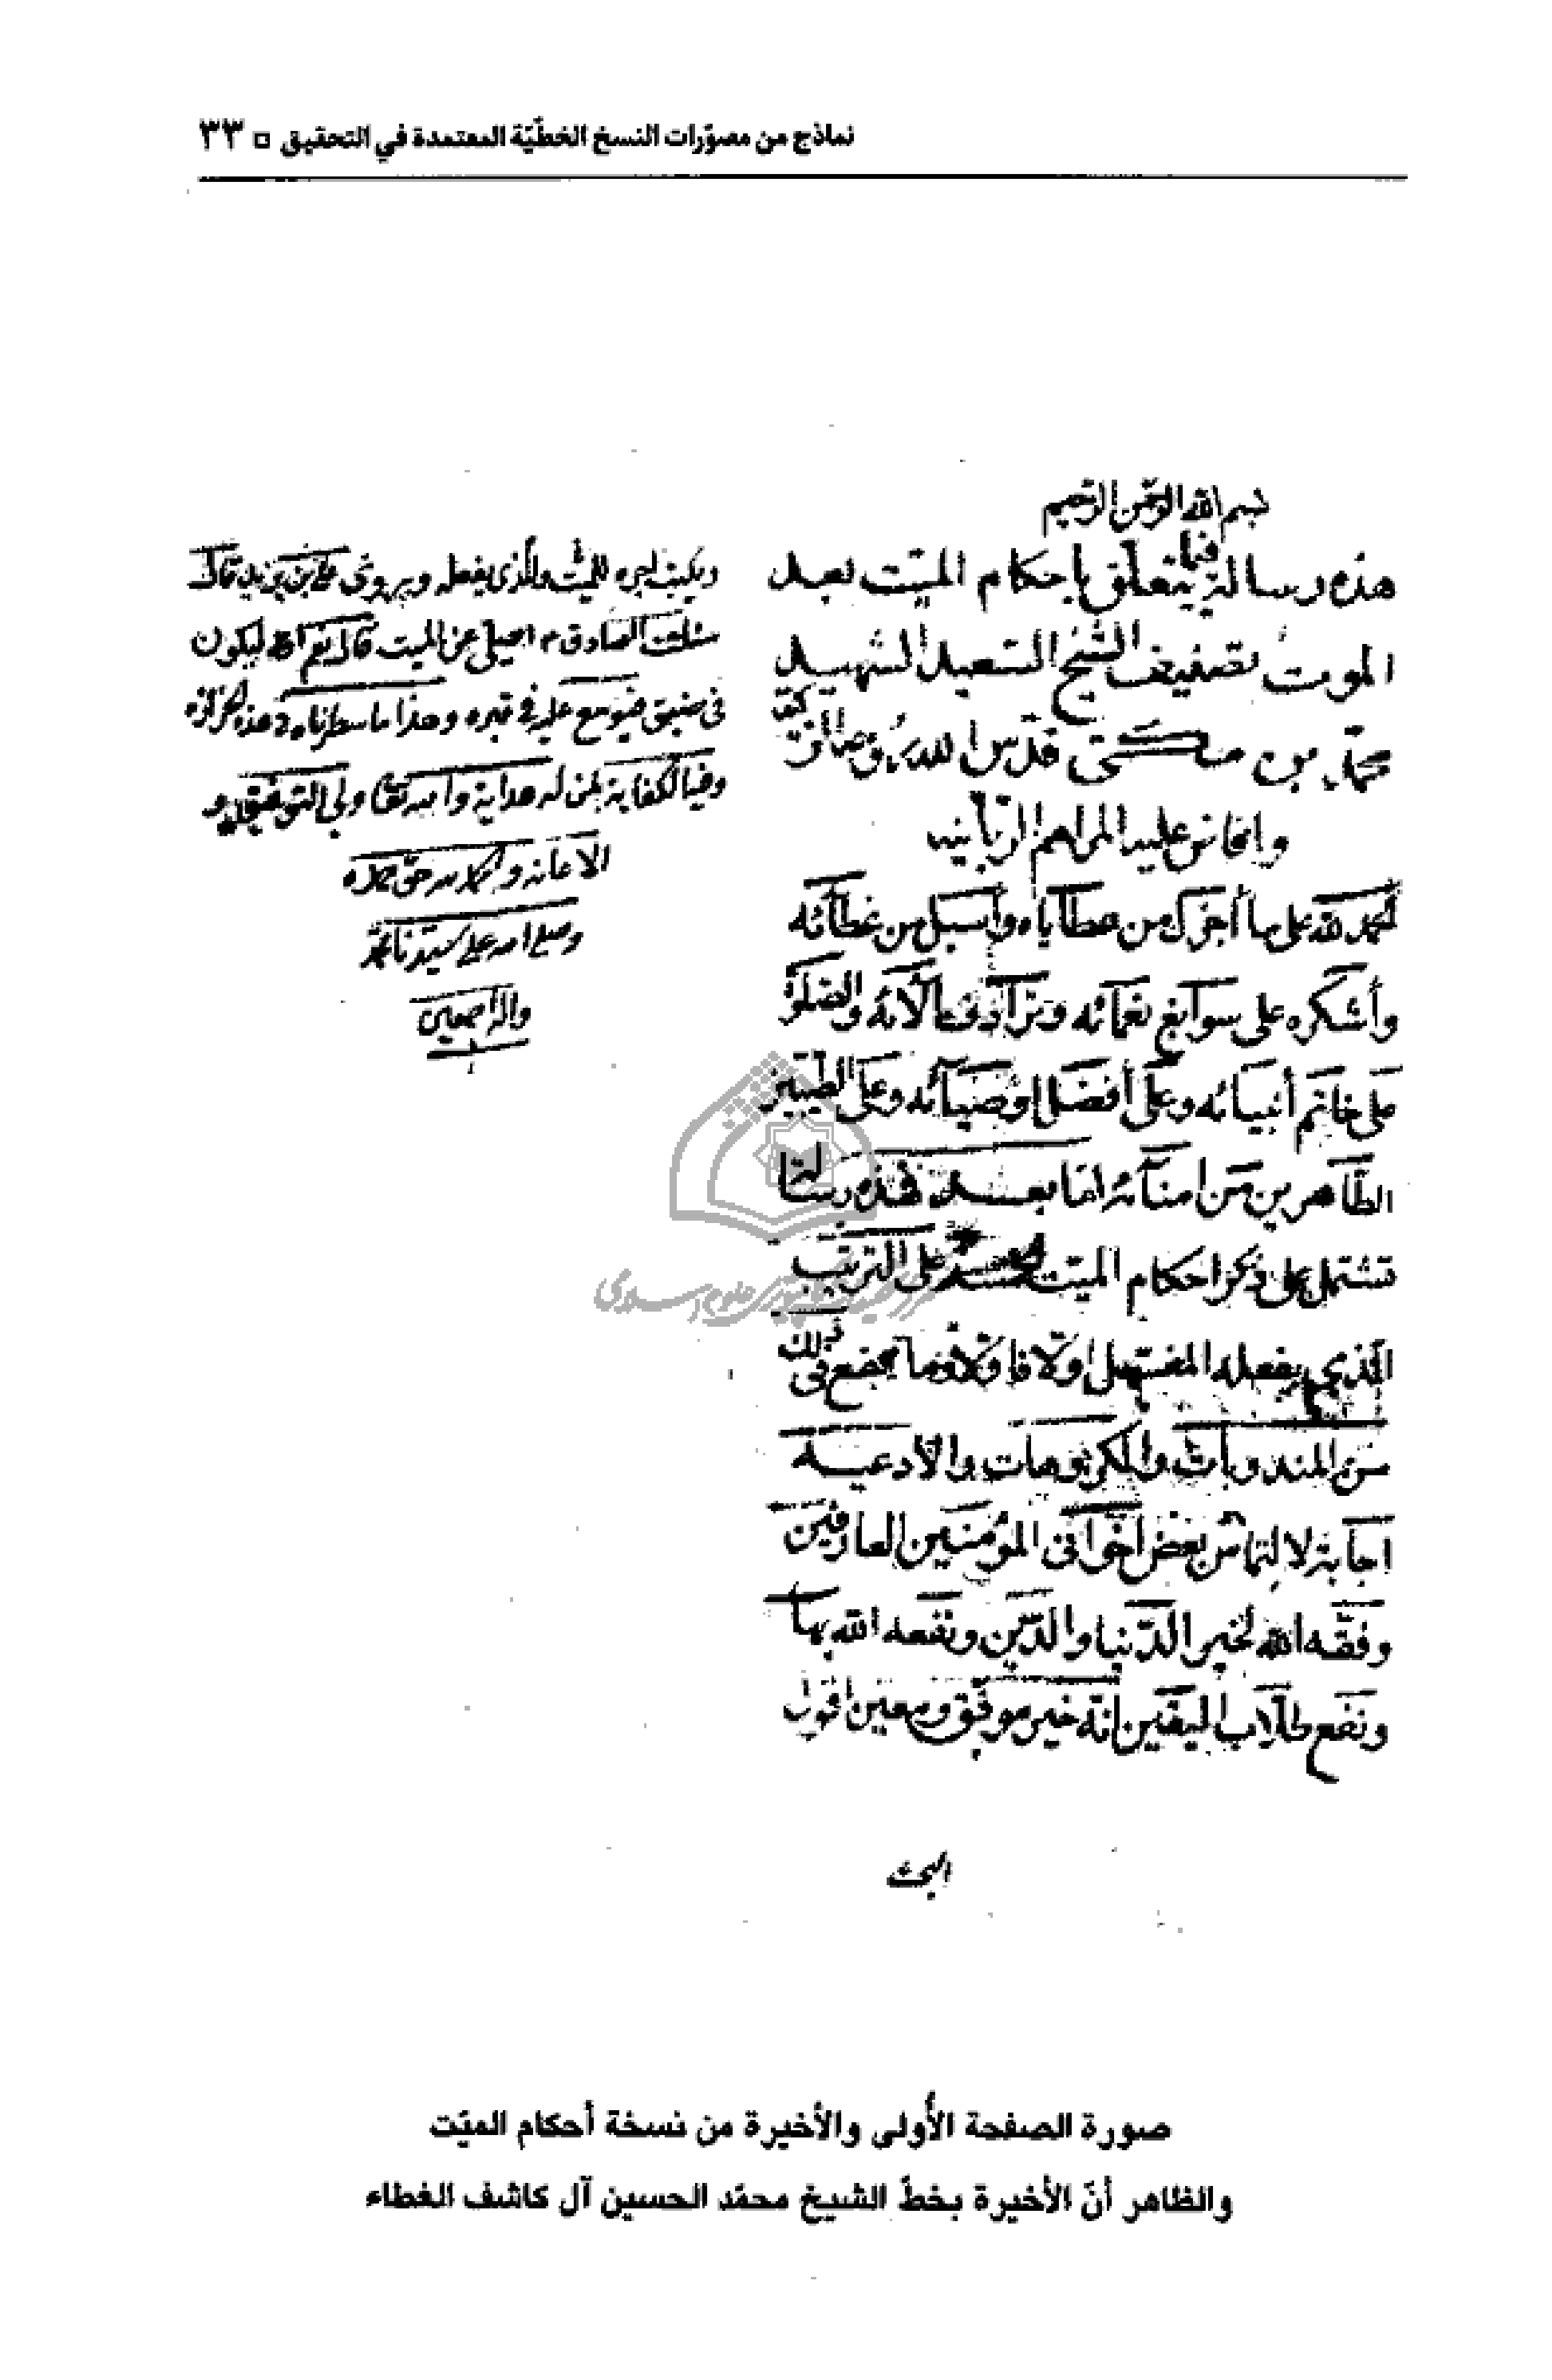 نماذج من مصوّرات النسخ الخطّيّة المعتمدة في التحقيق ◻ ٣٣
بسم الله الرحمن الرحيم
هذه رسالة فيما يتعلق باحكام الميّت بعد
الموت تصنيف الشيخ السعيد الشهيد
محمد بن مكي قدّس الله
وافاض عليه المراحم الربانيه
الحمد لله على ما أجزل من عطآياه وأسبل من غطآئه
وأشكره على سوابغ نعمائه وترادف آلائه والصلوة
على خاتم أنبيائه وعلى أفضل اوصيآئه وعلى الطيبين
الطّاهرين من امنآئه امّا بعد فهذه رسالة
تشتمل على ذكر احكام الميّت على الترتيب
الذي يفعله المغسّل اوّلا فاوّلا وما يجمع في ذلك
من المندوبات والمكروهات والأدعيه
اجابة لالتماس بعض اخواني المؤمنين العارفين
وفقه الله لخير الدّنيا والدّين ونفعه الله بها
ونفع طلّاب اليقين انّه خير موفّق ومعين اقول
البحث
ويكتب اجره للميّت وللذي يفعله وروى بن يزيد قال
سئلت الصادق ع اصلي عن الميت قال نعم انه ليكون
في ضيق فيوسع عليه في قبره وهذا ما سطرناه
وفيها كفاية لمن له هداية والله تعالى ولي التوفيق و
الاعانه والحمد لله حق حمده
وصلى الله على سيدنا محمد
واله اجمعين
صورة الصفحة الأُولى والأخيرة من نسخة أحكام الميّت
والظاهر أنّ الأخيرة بخطّ الشيخ محمّد الحسين آل كاشف الغطاء